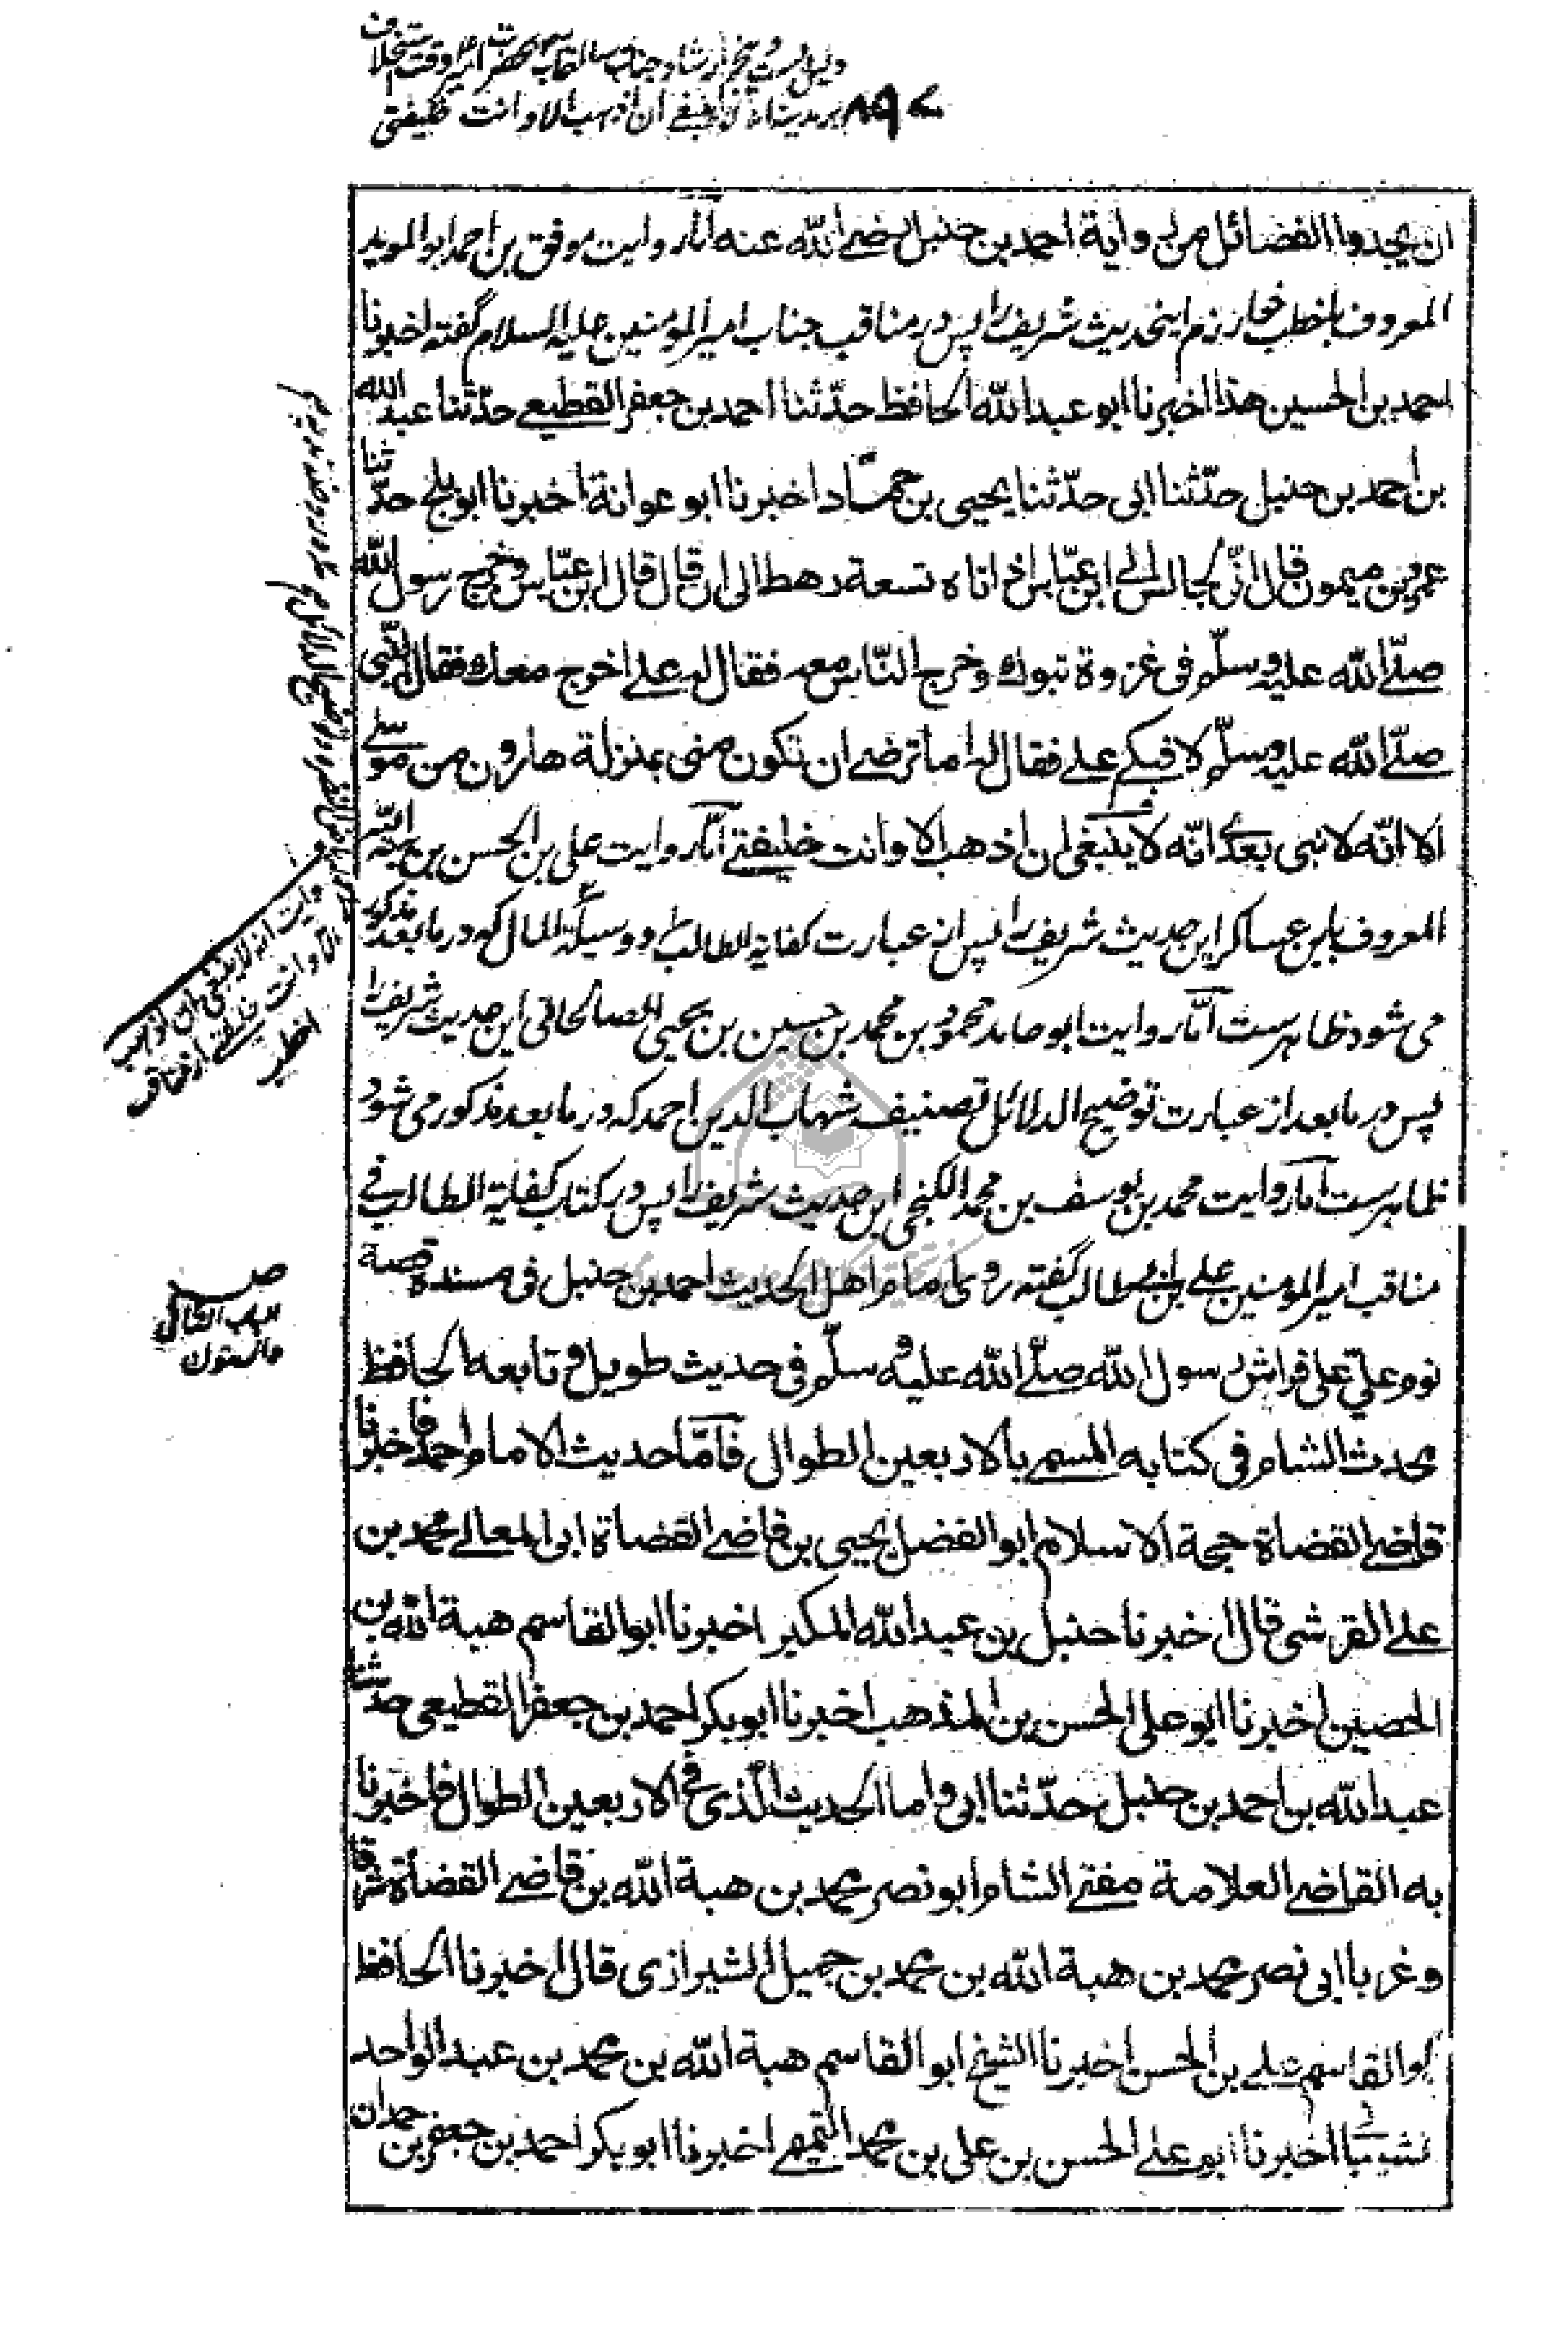 دلیل بست و پنجم ارشاد جناب رسالتمآب بحضرت امیر وقت استخلاف
۸۹۷ بر مدینه انه لا ینبغی ان اذهب الا و انت خلیفتی
ان یجدوا الفضائل من روایة احمد بن حنبل رضی الله عنه امّا روایت موفق بن احمد ابو الموید
المعروف باخطب خوارزم اینحدیث شریف را پس در مناقب جناب امیر المؤمنین علیه السلام گفته اخبرنا
احمد بن الحسین هذا اخبرنا ابو عبد الله الحافظ حدّثنا احمد بن جعفر القطیعی حدّثنا عبد الله
بن احمد بن حنبل حدّثنا ابی حدّثنا یحیی بن حمّاد اخبرنا ابو عوانة اخبرنا ابو بلج حدّثنا
عمرو بن میمون قال انّی لجالس الی ابن عبّاس اذ اتاه تسعة رهط الی ان قال قال ابن عبّاس و خرج رسول الله
صلّی الله علیه و سلّم فی غزوة تبوك و خرج النّاس معه فقال له علی اخرج معك فقال النّبی
صلّی الله علیه و سلّم لا فبکی علی فقال له اما ترضی ان تکون منی بمنزلة هارون من موسی
الا انّه لا نبی بعدی انّه لا ینبغی ان اذهب الا و انت خلیفتی امّا روایت علی بن الحسن بن هبة الله
المعروف بابن عساکر این حدیث شریف را پس از عبارت کفایة الطالب و وسیلة المآل که در ما بعد مذکور
می شود ظاهرست امّا روایت ابو حامد محمود بن محمد بن حسین بن یحیی الصالحانی این حدیث شریف را
پس در ما بعد از عبارت توضیح الدلائل تصنیف شهاب الدین احمد که در ما بعد مذکور می شود
ظاهرست امّا روایت محمد بن یوسف بن محمد الکنجی این حدیث شریف را پس در کتاب کفایة الطالب فی
مناقب امیر المؤمنین علی بن ابی طالب گفته روی امام اهل الحدیث احمد بن حنبل فی مسنده قصة
نوم علی علی فراش رسول الله صلّی الله علیه و سلّم فی حدیث طویل و تابعه الحافظ
محدث الشام فی کتابه المسمی بالاربعین الطوال فامّا حدیث الامام احمد فاخبرنا
قاضی القضاة حجة الاسلام ابو الفضل یحیی بن قاضی القضاة ابی المعالی محمد بن
علی القرشی قال اخبرنا حنبل بن عبد الله المکبر اخبرنا ابو القاسم هبة الله بن
الحصین اخبرنا ابو علی الحسن بن المذهب اخبرنا ابو بکر احمد بن جعفر القطیعی حدّثنا
عبد الله بن احمد بن حنبل حدّثنا ابی و اما الحدیث الّذی فی الاربعین الطوال فاخبرنا
به القاضی العلامة مفتی الشام ابو نصر محمد بن هبة الله بن قاضی القضاة شرقا
و غربا ابی نصر محمد بن هبة الله بن محمد بن جمیل الشیرازی قال اخبرنا الحافظ
ابو القاسم علی بن الحسن اخبرنا الشیخ ابو القاسم هبة الله بن محمد بن عبد الواحد
الشیبانی اخبرنا ابو علی الحسن بن علی بن محمد التمیمی اخبرنا ابو بکر احمد بن جعفر بن حمدان
روایت انه لا ینبغی ان اذهب
الا و انت خلیفتی از مناقب
اخطب
الباب الثانی
والستون